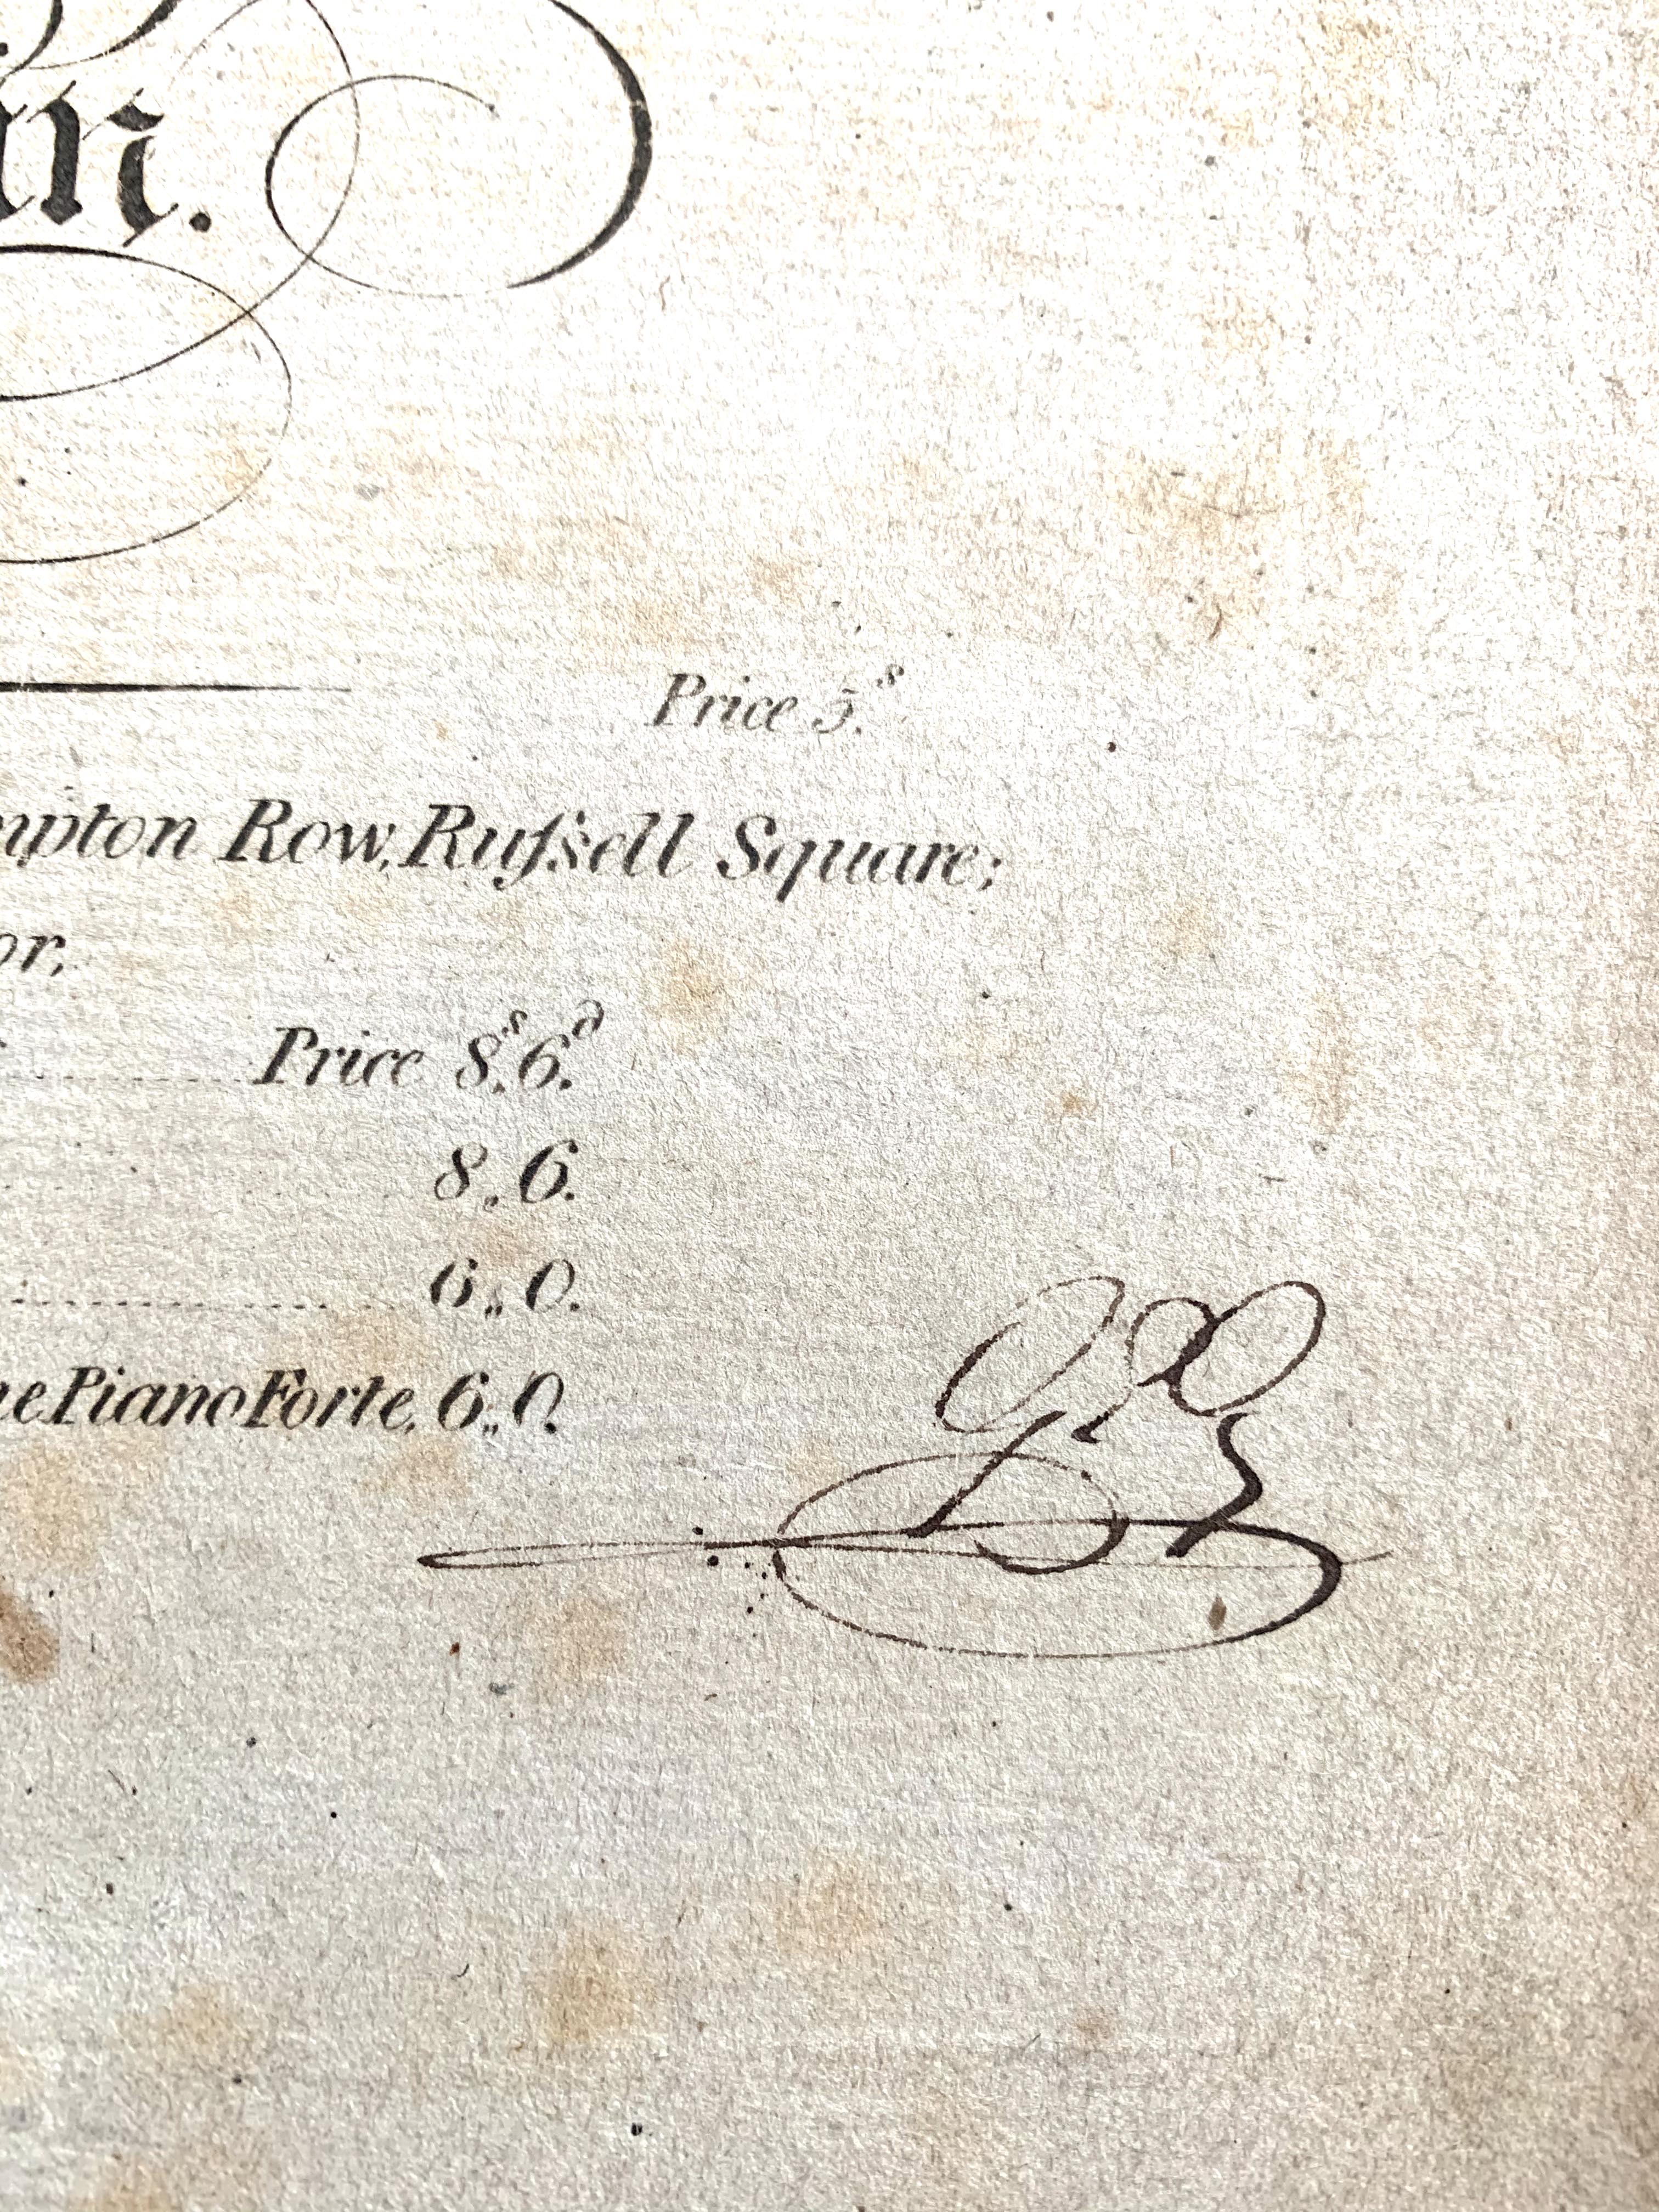 n.
Price 5.s
mpton Row, Rufsell Square;
or,
Price 8.s 6.d
8,, 6.
6,, 0.
ne Piano Forte, 6,, 0.